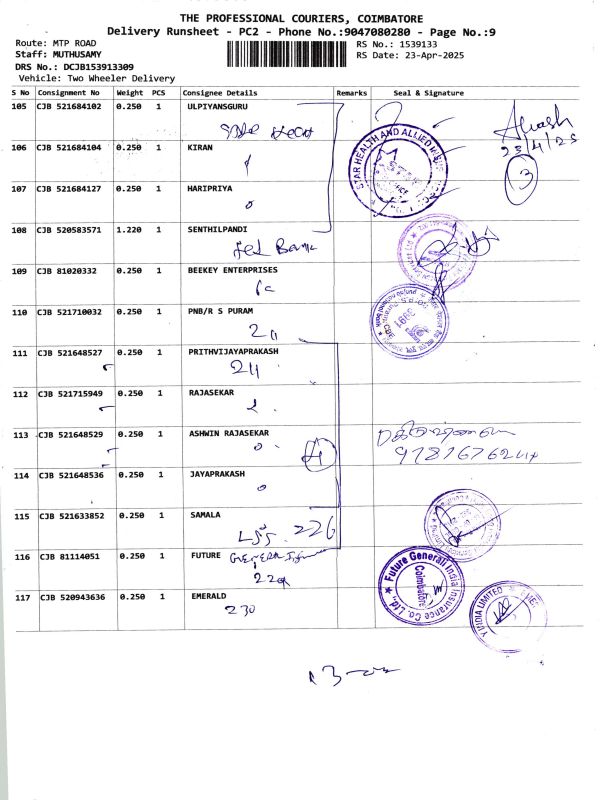 THE PROFESSIONAL COURIERS, COIMBATORE
Delivery Runsheet - PC2 - Phone No.:9047080280 - Page No.:9
Route: MTP ROAD
Staff: MUTHUSAMY
DRS No.: DCJB153913309
Vehicle: Two Wheeler Delivery
RS No.: 1539133
RS Date: 23-Apr-2025
S No Consignment No Weight PCS Consignee Details Remarks Seal & Signature
105 CJB 521684102 0.250 1 ULPIYANSGURU
Akash
23/4/25
3
106 CJB 521684104 0.250 1 KIRAN
STAR HEALTH AND ALLIED
107 CJB 521684127 0.250 1 HARIPRIYA
108 CJB 520583571 1.220 1 SENTHILPANDI
109 CJB 81020332 0.250 1 BEEKEY ENTERPRISES
110 CJB 521710032 0.250 1 PNB/R S PURAM
3991
211
111 CJB 521648527 0.250 1 PRITHVIJAYAPRAKASH
211
112 CJB 521715949 0.250 1 RAJASEKAR
113 CJB 521648529 0.250 1 ASHWIN RAJASEKAR
4
114 CJB 521648536 0.250 1 JAYAPRAKASH
115 CJB 521633852 0.250 1 SAMALA
226
116 CJB 81114051 0.250 1 FUTURE
229
Future Generali India Insurance Co. Ltd.,
Coimbatore
117 CJB 520943636 0.250 1 EMERALD
230
INDIA LIMITED